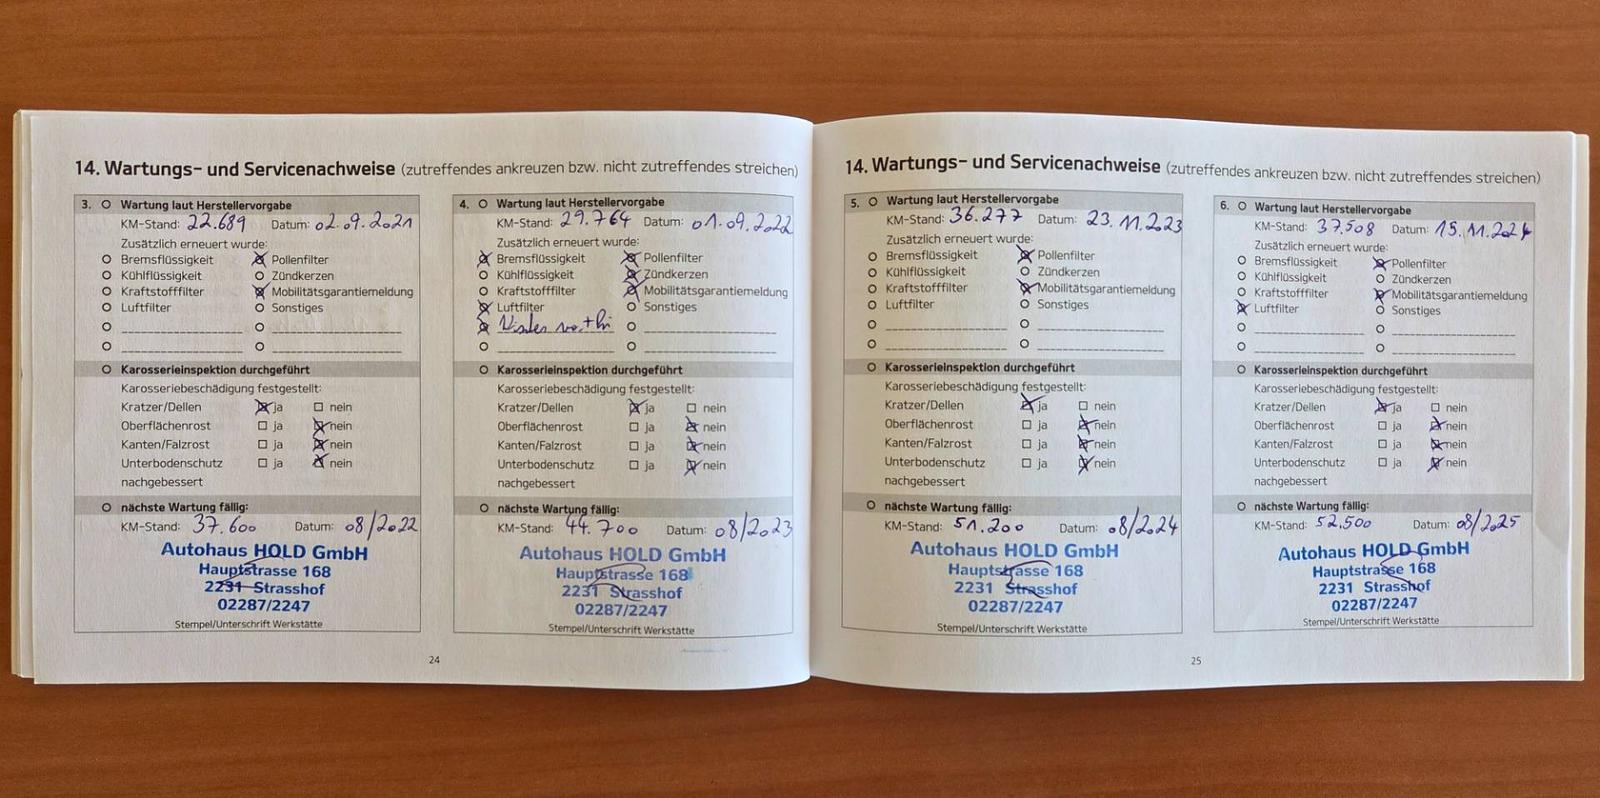 14. Wartungs- und Servicenachweise (zutreffendes ankreuzen bzw. nicht zutreffendes streichen)
3. Wartung laut Herstellervorgabe
KM-Stand: 22.689 Datum: 02.09.2021
Zusätzlich erneuert wurde:
Bremsflüssigkeit Pollenfilter
Kühlflüssigkeit Zündkerzen
Kraftstofffilter Mobilitätsgarantiemeldung
Luftfilter Sonstiges
Karosserieinspektion durchgeführt
Karosseriebeschädigung festgestellt:
Kratzer/Dellen ja nein
Oberflächenrost ja nein
Kanten/Falzrost ja nein
Unterbodenschutz ja nein
nachgebessert
nächste Wartung fällig:
KM-Stand: 37.600 Datum: 08/2022
Autohaus HOLD GmbH
Hauptstrasse 168
2231 Strasshof
02287/2247
Stempel/Unterschrift Werkstätte
4. Wartung laut Herstellervorgabe
KM-Stand: 29.764 Datum: 01.09.2022
Zusätzlich erneuert wurde:
Bremsflüssigkeit Pollenfilter
Kühlflüssigkeit Zündkerzen
Kraftstofffilter Mobilitätsgarantiemeldung
Luftfilter Sonstiges
Karosserieinspektion durchgeführt
Karosseriebeschädigung festgestellt:
Kratzer/Dellen ja nein
Oberflächenrost ja nein
Kanten/Falzrost ja nein
Unterbodenschutz ja nein
nachgebessert
nächste Wartung fällig:
KM-Stand: 44.700 Datum: 08/2023
Autohaus HOLD GmbH
Hauptstrasse 168
2231 Strasshof
02287/2247
Stempel/Unterschrift Werkstätte
24
14. Wartungs- und Servicenachweise (zutreffendes ankreuzen bzw. nicht zutreffendes streichen)
5. Wartung laut Herstellervorgabe
KM-Stand: 36.277 Datum: 23.11.2023
Zusätzlich erneuert wurde:
Bremsflüssigkeit Pollenfilter
Kühlflüssigkeit Zündkerzen
Kraftstofffilter Mobilitätsgarantiemeldung
Luftfilter Sonstiges
Karosserieinspektion durchgeführt
Karosseriebeschädigung festgestellt:
Kratzer/Dellen ja nein
Oberflächenrost ja nein
Kanten/Falzrost ja nein
Unterbodenschutz ja nein
nachgebessert
nächste Wartung fällig:
KM-Stand: 51.200 Datum: 08/2024
Autohaus HOLD GmbH
Hauptstrasse 168
2231 Strasshof
02287/2247
Stempel/Unterschrift Werkstätte
6. Wartung laut Herstellervorgabe
KM-Stand: 37.508 Datum: 15.11.2024
Zusätzlich erneuert wurde:
Bremsflüssigkeit Pollenfilter
Kühlflüssigkeit Zündkerzen
Kraftstofffilter Mobilitätsgarantiemeldung
Luftfilter Sonstiges
Karosserieinspektion durchgeführt
Karosseriebeschädigung festgestellt:
Kratzer/Dellen ja nein
Oberflächenrost ja nein
Kanten/Falzrost ja nein
Unterbodenschutz ja nein
nachgebessert
nächste Wartung fällig:
KM-Stand: 52.500 Datum: 08/2025
Autohaus HOLD GmbH
Hauptstrasse 168
2231 Strasshof
02287/2247
Stempel/Unterschrift Werkstätte
25